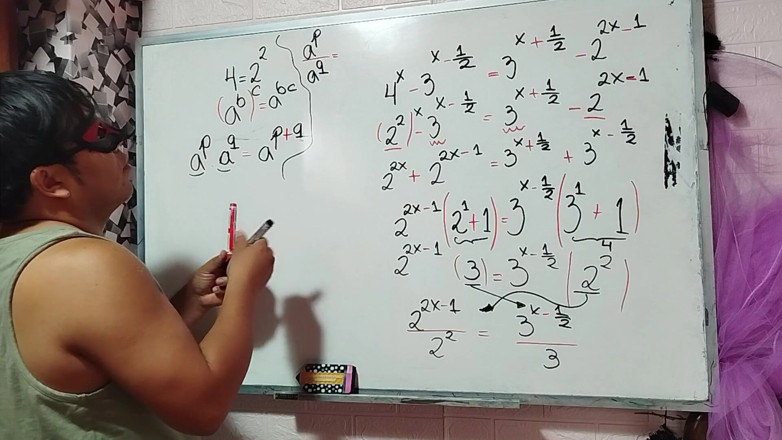 4 = 2^2
(a^b)^c = a^{bc}
a^p a^q = a^{p+q}
a^p/a^q =
4^x - 3^{x - 1/2} = 3^{x + 1/2} - 2^{2x-1}
(2^2)^x - 3^{x - 1/2} = 3^{x + 1/2} - 2^{2x-1}
2^{2x} + 2^{2x-1} = 3^{x + 1/2} + 3^{x - 1/2}
2^{2x-1} (2^1 + 1) = 3^{x - 1/2} (3^1 + 1)
4
2^{2x-1} (3) = 3^{x - 1/2} (2^2)
2^{2x-1}/2^2 = 3^{x - 1/2}/3